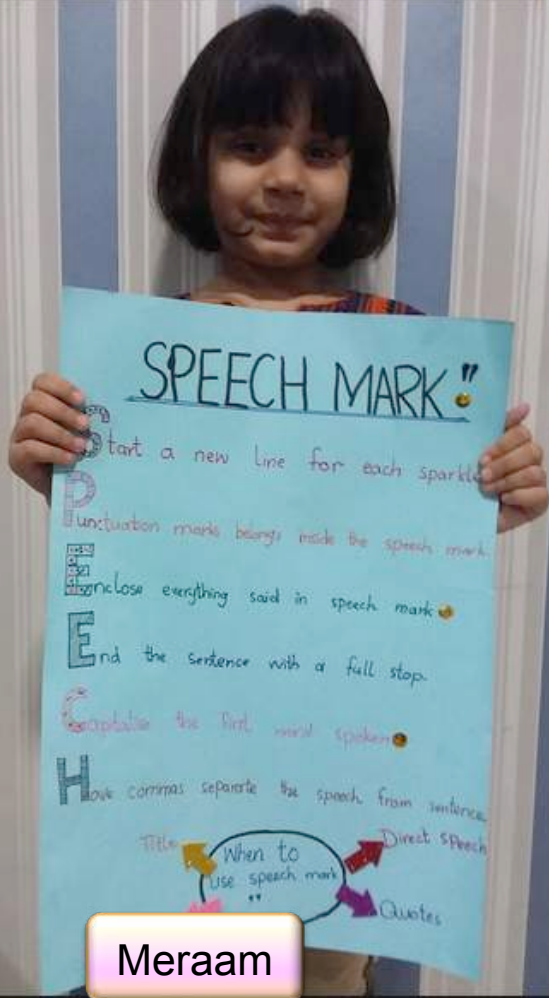 SPEECH MARK "
Start a new line for each sparkle
Punctuation marks belongs inside the speech mark.
Enclose everything said in speech mark
End the sentence with a full stop.
Capitalise the first word spoken
Have commas separate the speech from sentence
Title
Direct speech
When to
use speech mark
" "
Quotes
Meraam